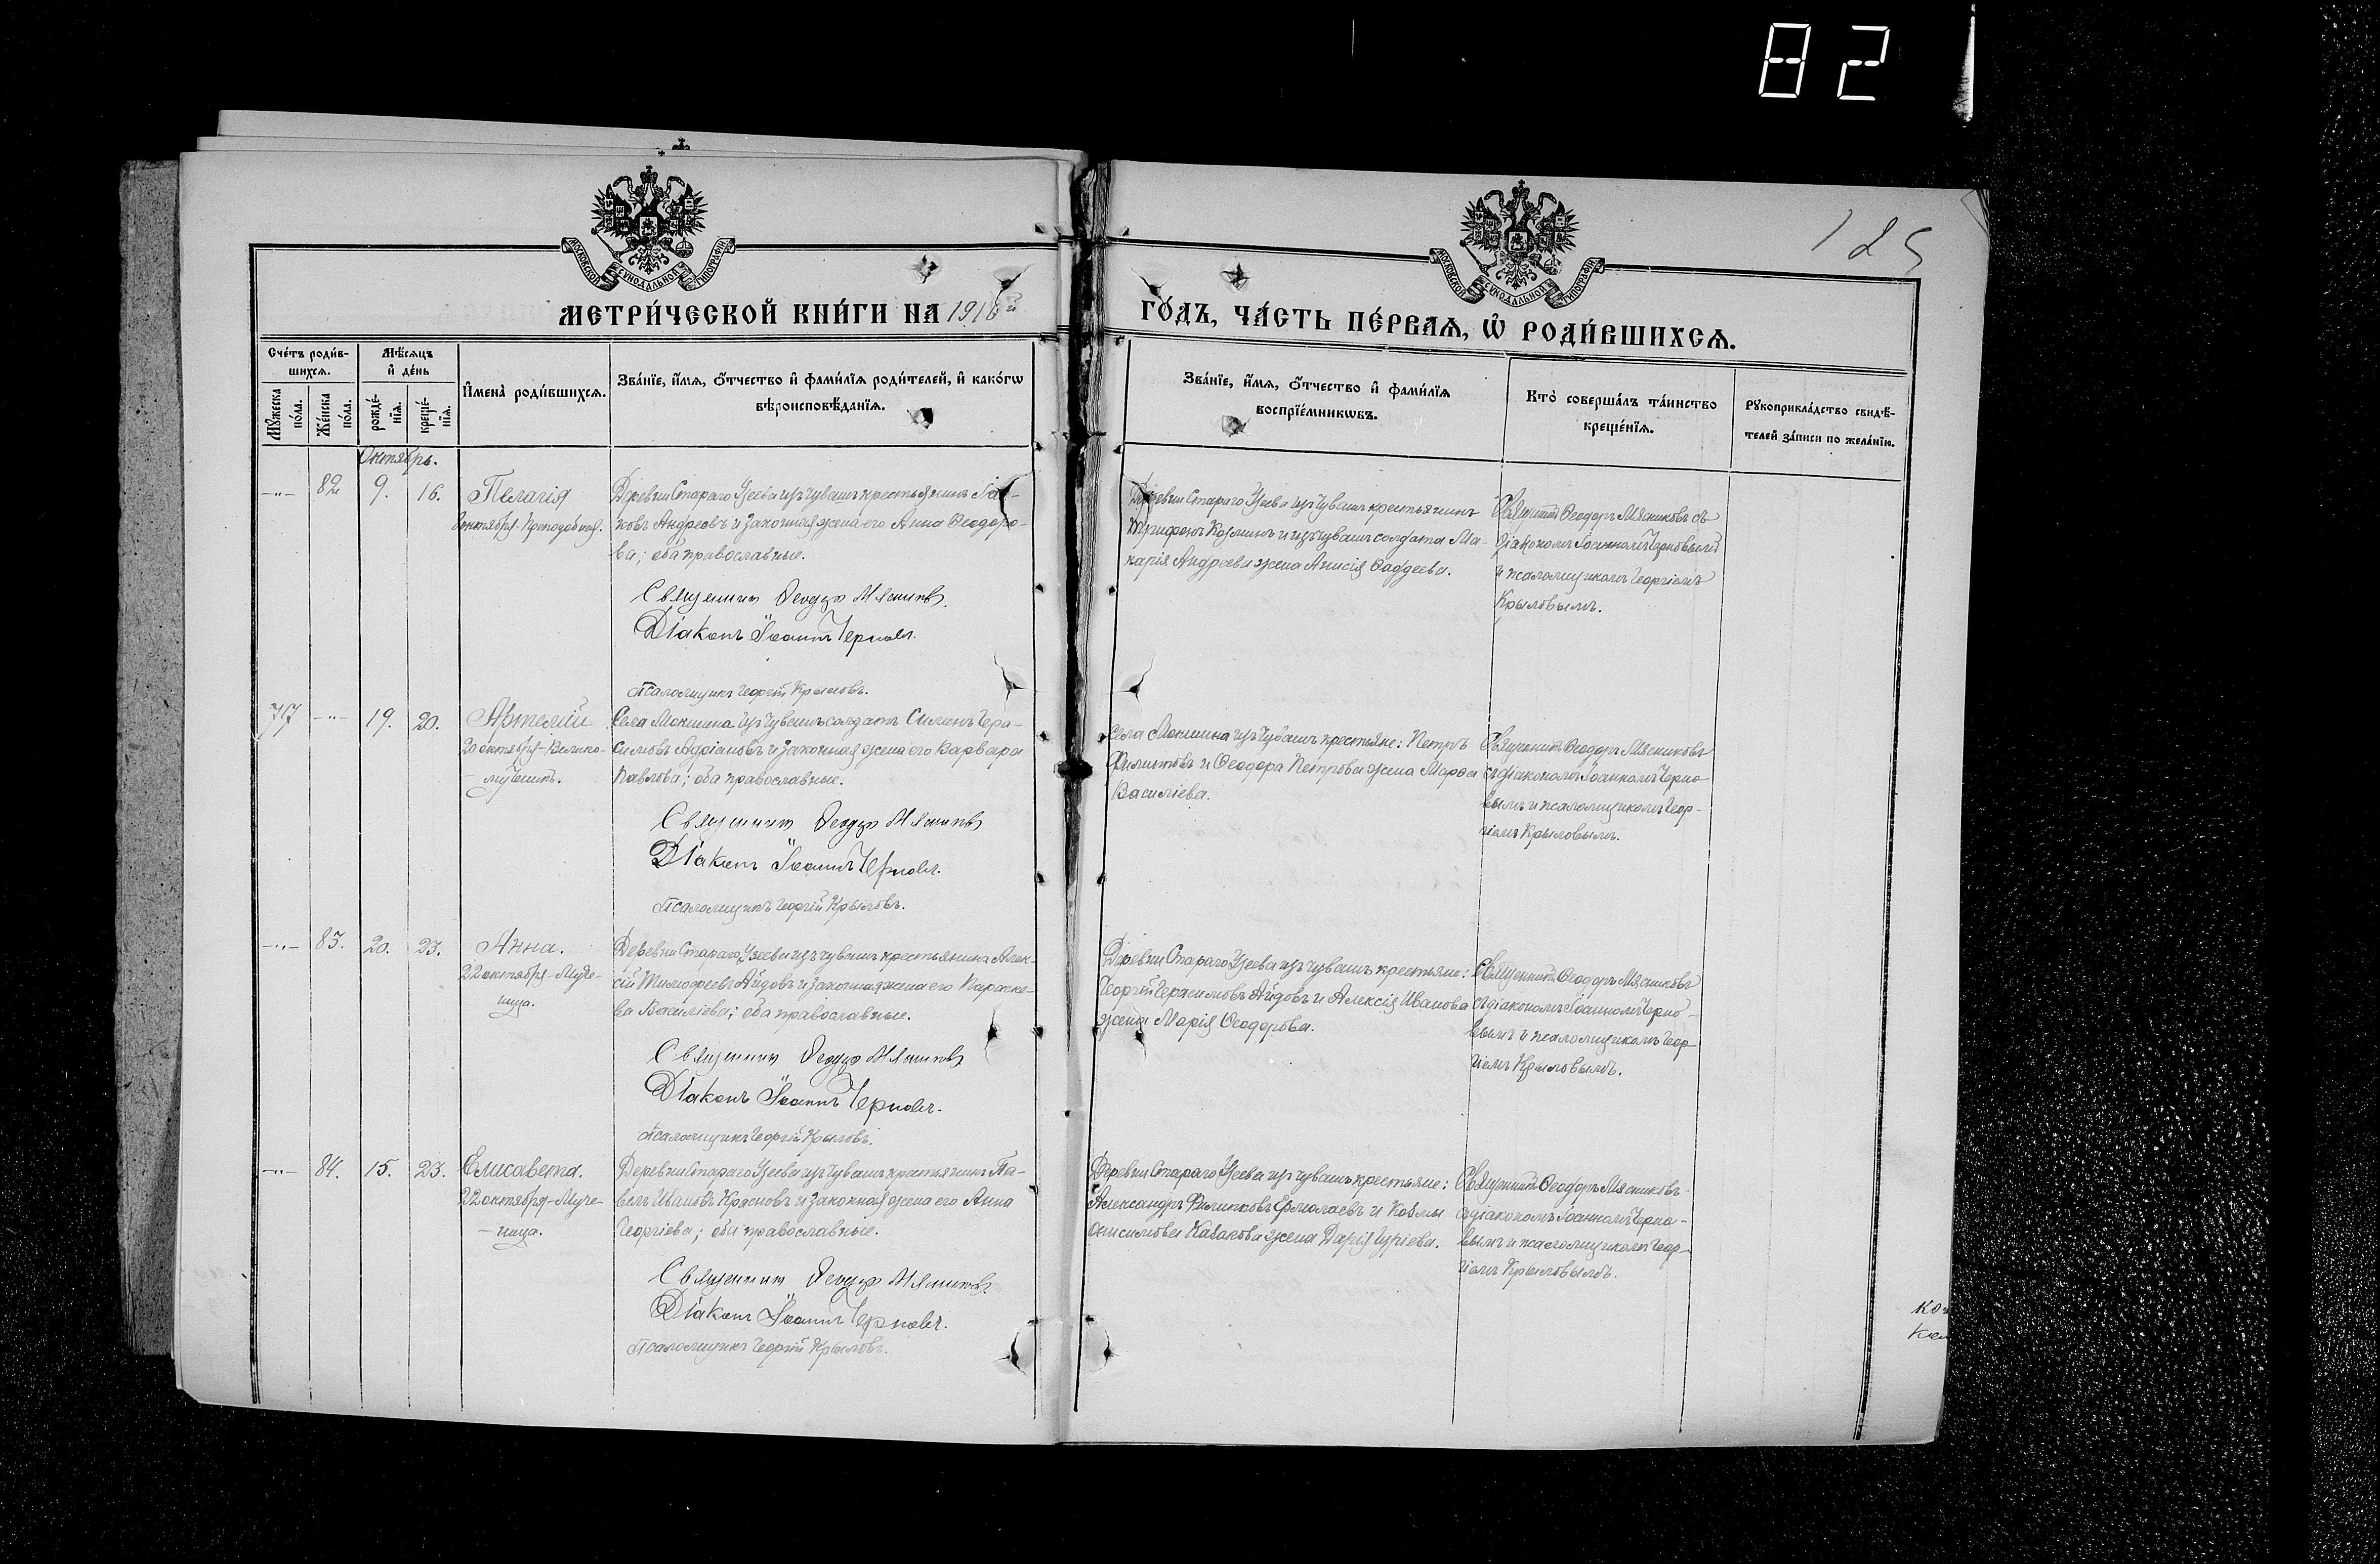 82
125
МОСКОВСКОЙ СѴНОДАЛЬНОЙ ТИПОГРАФІИ
МОСКОВСКОЙ СѴНОДАЛЬНОЙ ТИПОГРАФІИ
МЕТРИ́ЧЕСКОЙ КНИ́ГИ НА 1916й
ГО́ДЪ, ЧА́СТЬ ПЕ́РВАѦ, Ѡ҆ РОДИ́ВШИХСѦ.
Сче́тъ роди́в-
шихсѧ.
Мѣ́сѧцъ
и҆ де́нь
Мꙋ́жеска
по́ла.
Же́нска
по́ла.
рожде́-
нїѧ.
креще́-
нїѧ.
И҆мена̀ роди́вшихсѧ.
Зва́нїе, и҆́мѧ, ѻ҆́тчество и҆ фами́лїѧ роди́телей, и҆ како́гѡ
вѣроисповѣ́данїѧ.
Зва́нїе, и҆́мѧ, ѻ҆́тчество и҆ фами́лїѧ
воспрїе́мникѡвъ.
Кто̀ соверша́лъ та́инство
креще́нїѧ.
Рꙋкоприкла́дство свидѣ́-
телей за́писи по жела́нїю.
Октябрь.
-"- 82 9. 16. Пелагія
8 октября - Преподобныя.
Деревни Стараго Узеева изъ чувашъ крестьянинъ
Андреевъ и законная жена его Анна Ѳеодоро-
ва; оба православные.
Священникъ Ѳеодоръ Мясниковъ
Діаконъ Іоаннъ Черновъ.
Псаломщикъ Георгій Крыловъ.
Деревни Стараго Узеева изъ чувашъ крестьянинъ
Трифонъ Козминъ и изъ чувашъ солдата Ма-
карія Андреева жена Анисія Ѳаддеева.
Священникъ Ѳеодоръ Мясниковъ съ
діакономъ Іоанномъ Черновымъ
и псаломщикомъ Георгіемъ
Крыловымъ.
77 -"- 19. 20. Артемій
20 октября - Велико-
мученикъ.
Села Мокшина изъ чувашъ солдатъ Симонъ Гера-
симовъ Адріановъ и законная жена его Варвара
Павлова; оба православные.
Священникъ Ѳеодоръ Мясниковъ
Діаконъ Іоаннъ Черновъ.
Псаломщикъ Георгій Крыловъ.
Села Мокшина изъ чувашъ крестьяне: Петръ
Филиповъ и Ѳеодора Петрова жена Марѳа
Василіева.
Священникъ Ѳеодоръ Мясниковъ
съ діакономъ Іоанномъ Черно-
вымъ и псаломщикомъ Геор-
гіемъ Крыловымъ.
-"- 83. 20. 23. Анна.
22 октября - Муче-
ница.
Деревни Стараго Узеева изъ чувашъ крестьянинъ Алек-
сій Тимофеевъ Айдовъ и законная жена его Параске-
ва Василіева; оба православные.
Священникъ Ѳеодоръ Мясниковъ
Діаконъ Іоаннъ Черновъ.
Псаломщикъ Георгій Крыловъ.
Деревни Стараго Узеева изъ чувашъ крестьяне:
Георгій Герасимовъ Айдовъ и Алексія Иванова
жена Марія Ѳеодорова.
Священникъ Ѳеодоръ Мясниковъ
съ діакономъ Іоанномъ Черно-
вымъ и псаломщикомъ Геор-
гіемъ Крыловымъ.
-"- 84. 15. 23. Елисавета.
22 октября - Муче-
ница.
Деревни Стараго Узеева изъ чувашъ крестьянинъ Па-
велъ Ивановъ Красновъ и законная жена его Анна
Георгіева; оба православные.
Священникъ Ѳеодоръ Мясниковъ
Діаконъ Іоаннъ Черновъ.
Псаломщикъ Георгій Крыловъ.
Деревни Стараго Узеева изъ чувашъ крестьяне:
Александръ Филиповъ Ермолаевъ и Козмы
Онисимова Казакова жена Дарія Гуріева.
Священникъ Ѳеодоръ Мясниковъ
съ діакономъ Іоанномъ Черно-
вымъ и псаломщикомъ Геор-
гіемъ Крыловымъ.